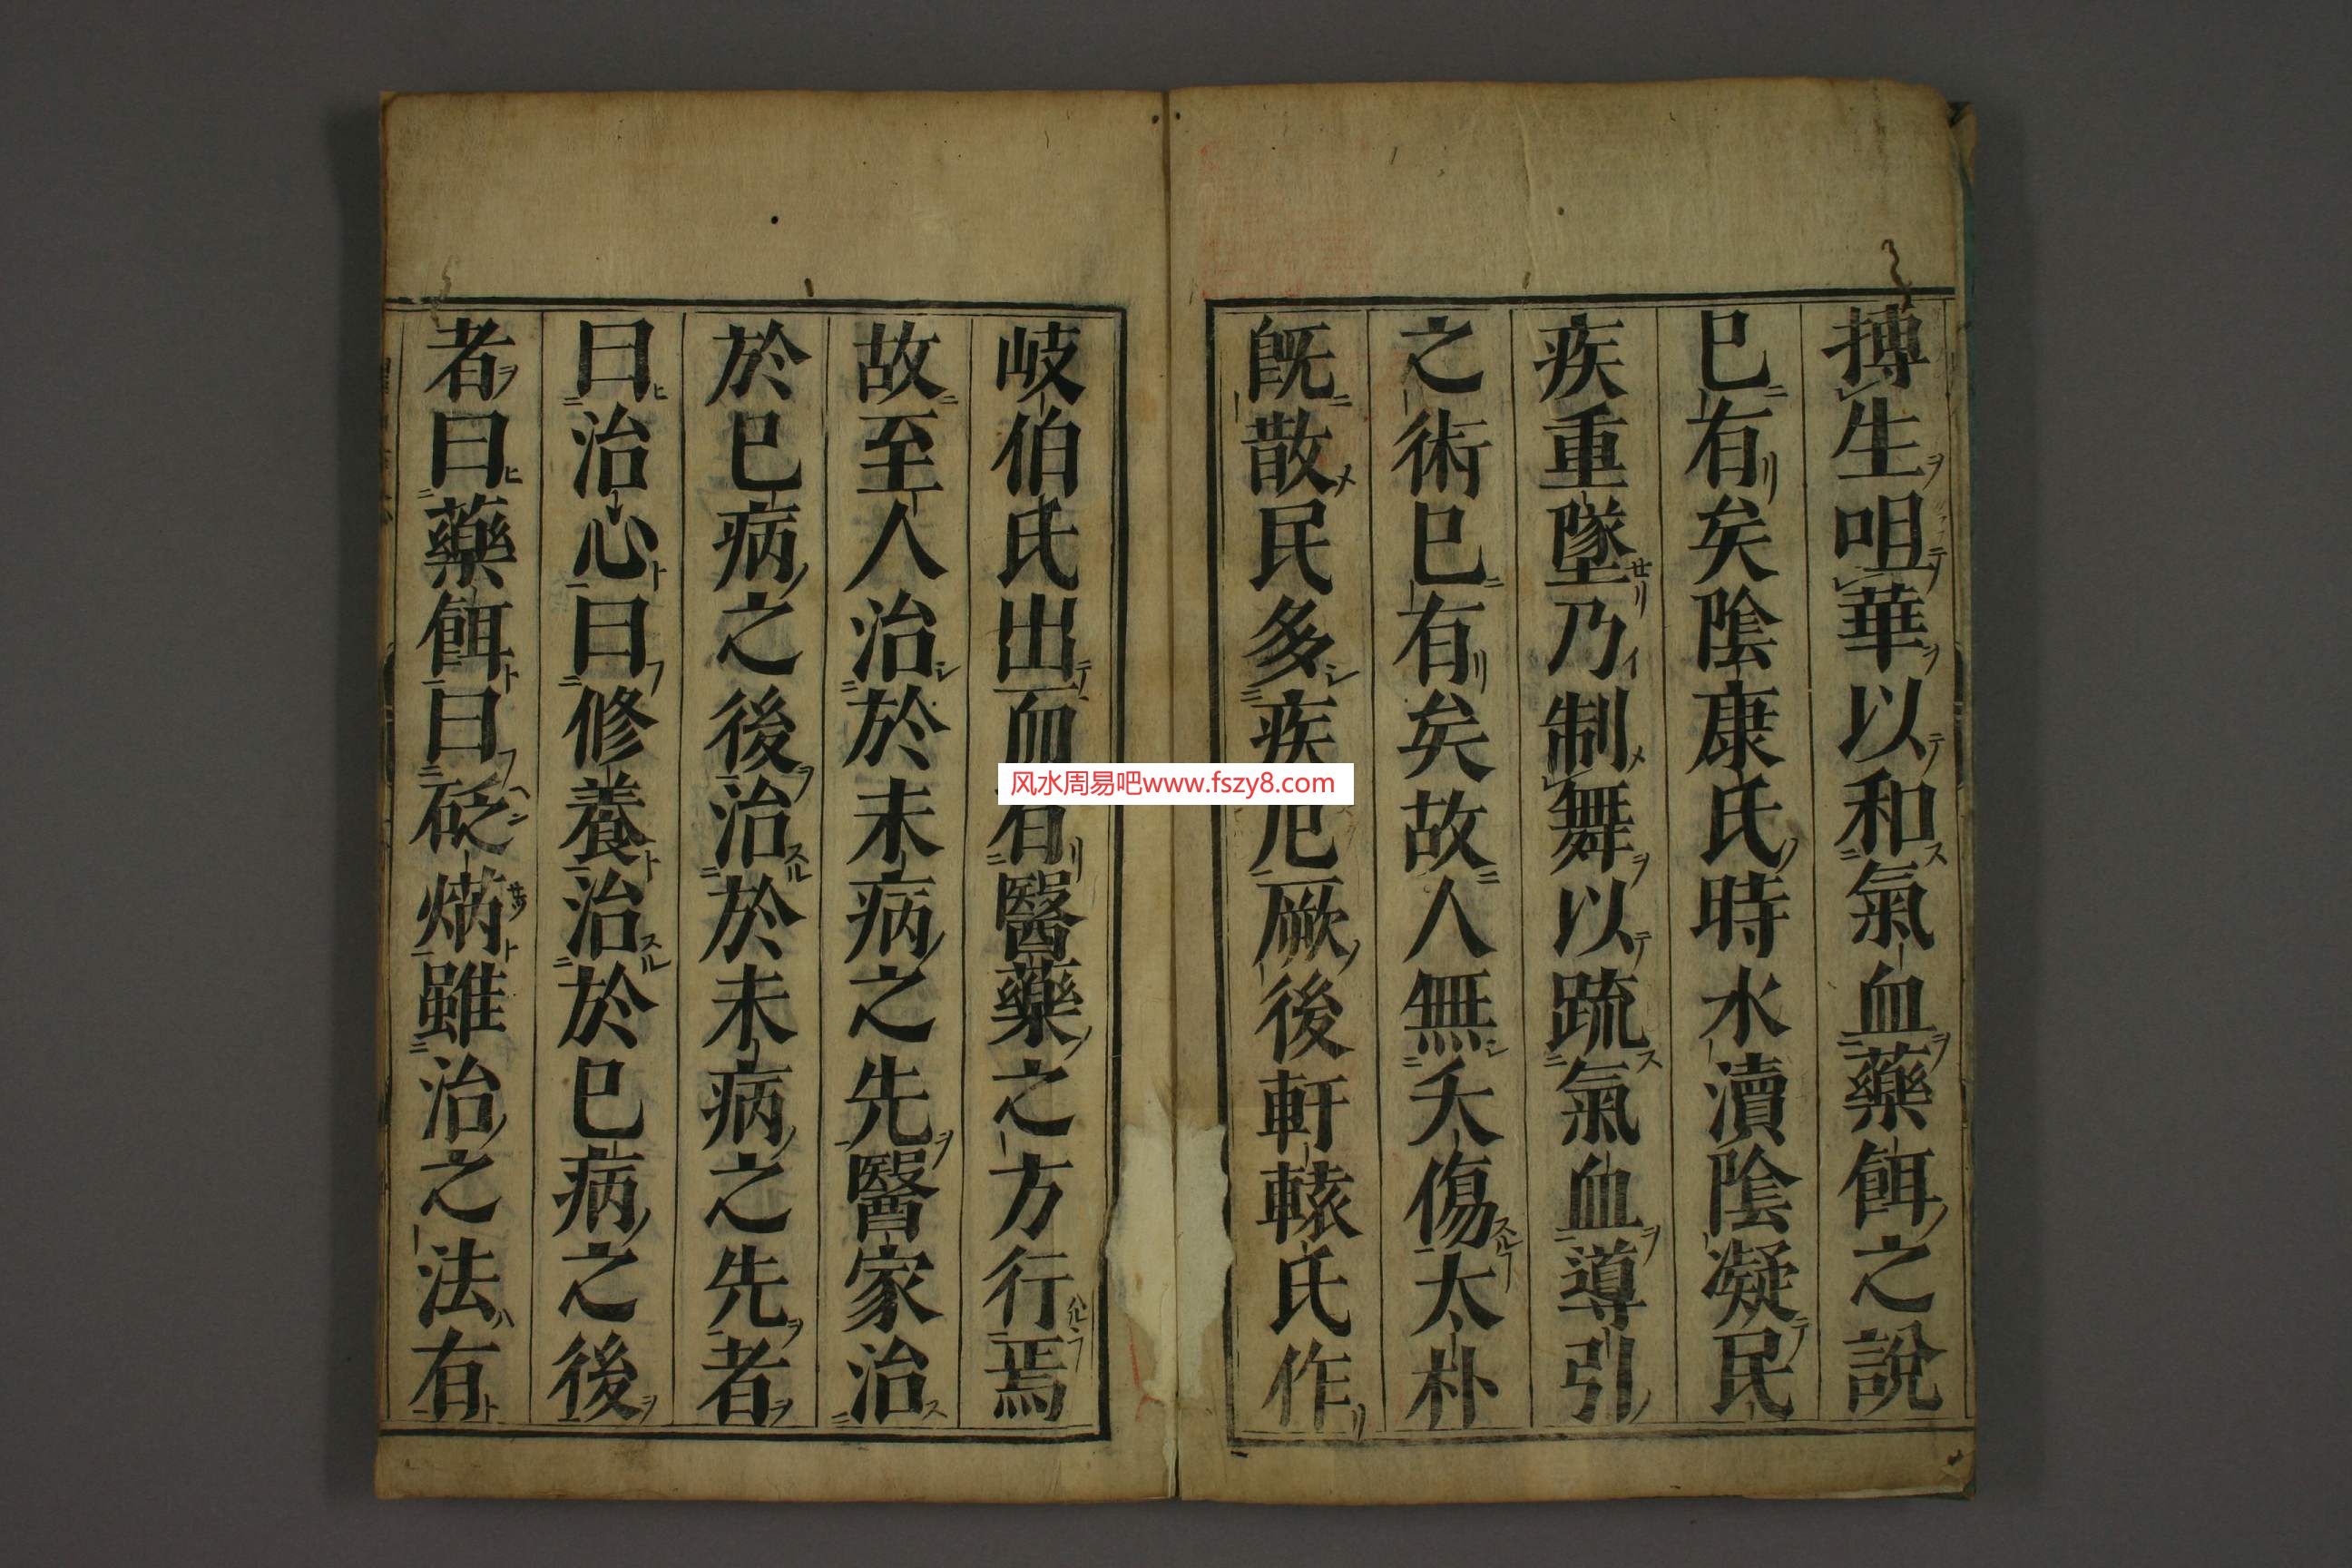 搏生咀華以和氣血藥餌之說
巳有矣陰康氏時水瀆陰凝民
疾重墜乃制舞以疏氣血導引
之術巳有矣故人無夭傷太朴
旣散民多疾厄厥後軒轅氏作
岐伯氏出而有醫藥之方行焉
故至人治於未病之先醫家治
於巳病之後治於未病之先者
曰治心曰修養治於巳病之後
者曰藥餌曰砭焫雖治之法有
风水周易吧www.fszy8.com